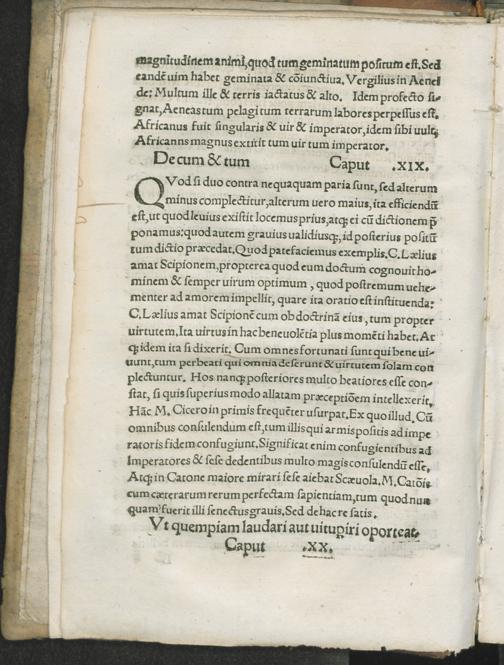 magnitudinem animi, quod tum geminatum positum est. Sed
eandē uim habet geminata & cōiunctiua. Vergilius in Aenei
de: Multum ille & terris iactatus & alto. Idem profecto si-
gnat, Aeneas tum pelagi tum terrarum labores perpessus est.
Africanus fuit singularis & uir & imperator, idem sibi uult,
Africanns magnus extitit tum uir tum imperator.
De cum & tum Caput .XIX.
QVod si duo contra nequaquam paria sunt, sed alterum
minus complectitur, alterum uero maius, ita efficiendū
est, ut quod leuius existit locemus prius, atq; ei cū dictionem p̄
ponamus: quod autem grauius ualidiusq;, id posterius positū
tum dictio præcedat. Quod patefaciemus exemplis. C. Lælius
amat Scipionem, propterea quod eum doctum cognouit ho-
minem & semper uirum optimum, quod postremum uehe-
menter ad amorem impellit, quare ita oratio est instituenda:
C. Lælius amat Scipionē cum ob doctrinā eius, tum propter
uirtutem. Ita uirtus in hac beneuolētia plus momēti habet. At
q; idem ita si dixerit. Cum omnes fortunati sunt qui bene ui-
uunt, tum perbeati qui omnia deserunt & uirtutem solam con
plectuntur. Hos nanq; posteriores multo beatiores esse con-
stat, si quis superius modo allatam præceptiōem intellexerit.
Hāc M. Cicero in primis frequēter usurpat. Ex quo illud. Cū
omnibus consulendum est, tum illis qui armis positis ad impe
ratoris fidem confugiunt. Significat enim confugientibus ad
Imperatores & sese dedentibus multo magis consulendū esse.
Atq; in Catone maiore mirari sese aiebat Scæuola. M. Catōis
cum cæterarum rerum perfectam sapientiam, tum quod nun
quam fuerit illi senectus grauis. Sed de hac re satis.
Vt quempiam laudari aut uituperi oporteat.
Caput .XX.